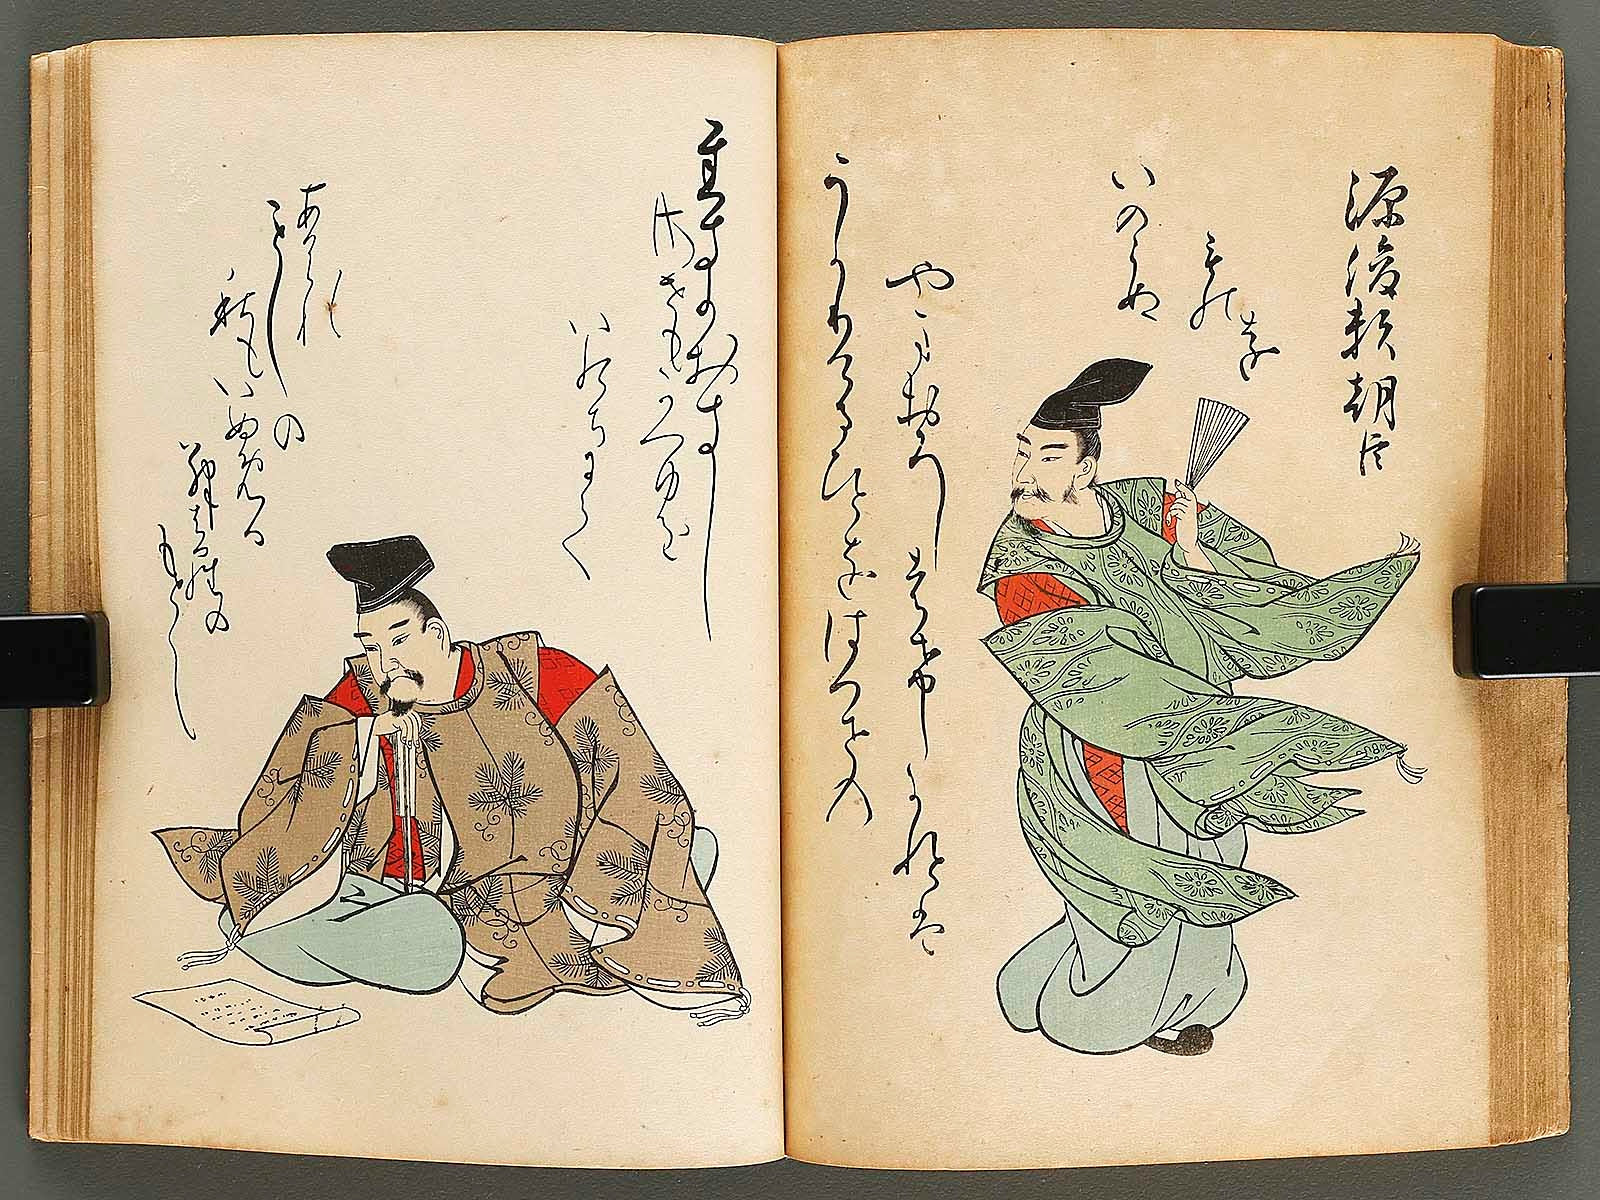 源俊頼朝臣
うかりけるひとをはつせの
やまおろしはけしかれとは
いのらぬ
もの
を
ちきりおきし
させもかつゆを
いのちにて
あはれ
ことしの
秋も
いぬめり